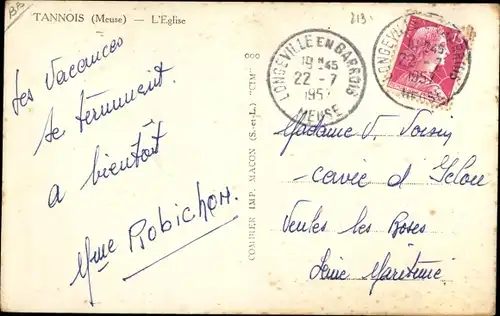 BA
TANNOIS (Meuse) — L'Eglise
813
les vacances
se terminent.
a bientôt
Mme ROBICHON.
COMBIER IMP. MACON (S.-et-L.) "CIM"
LONGEVILLE EN BARROIS
19H45
22 - 7
1957
MEUSE
LONGEVILLE EN BARROIS
19H45
22 - 7
1957
MEUSE
Madame V. Voisin
cavée d'
Veules les Roses
Seine Maritime